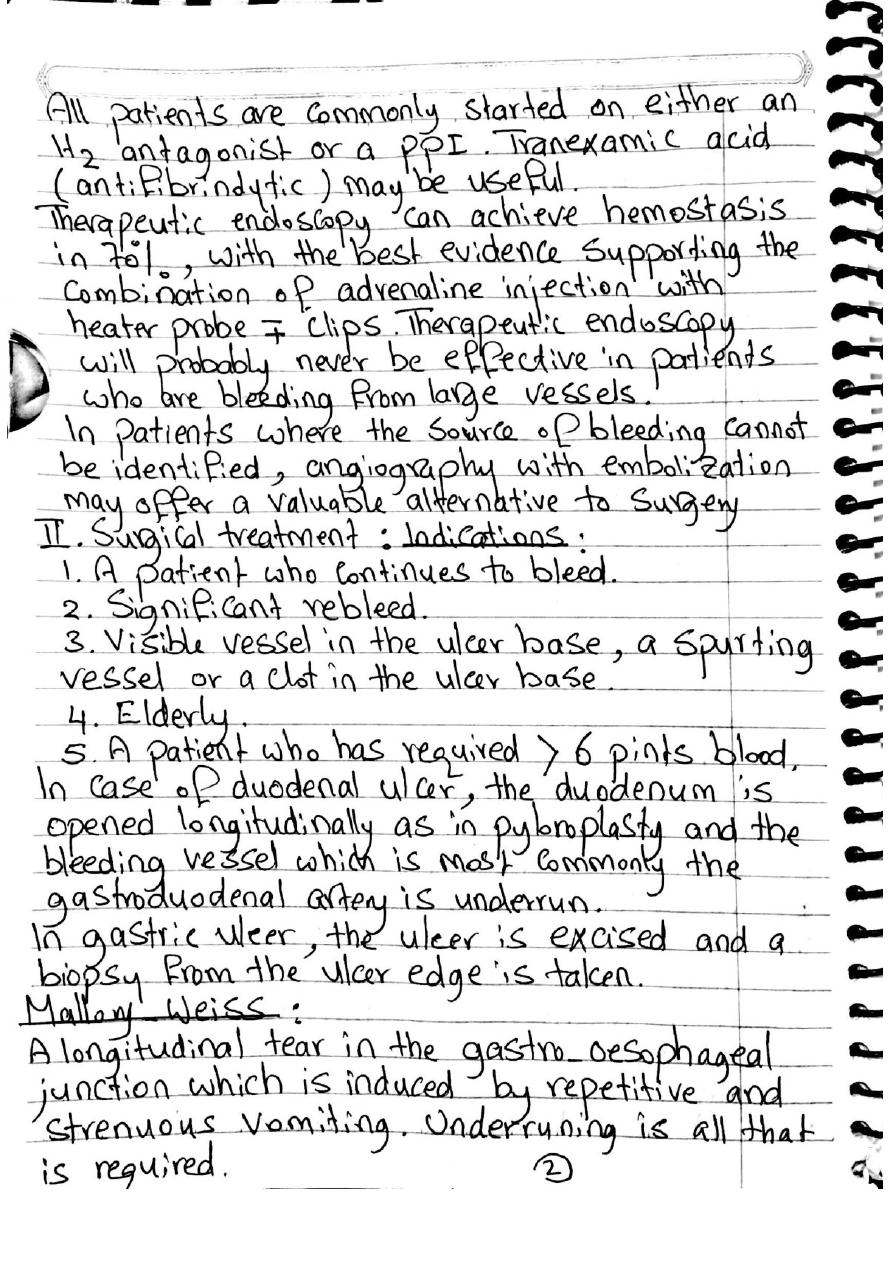 All patients are commonly started on either an
H2 antagonist or a PPI. Tranexamic acid
(antifibrindytic) may be useful.
Therapeutic endoscopy can achieve hemostasis
in 70%, with the best evidence supporting the
combination of adrenaline injection with
heater probe ∓ clips. Therapeutic endoscopy
will probably never be effective in patients
who are bleeding from large vessels.
In patients where the source of bleeding cannot
be identified, angiography with embolization
may offer a valuable alternative to surgery
II. Surgical treatment : Indications :
1. A patient who continues to bleed.
2. Significant rebleed.
3. Visible vessel in the ulcer base, a spurting
vessel or a clot in the ulcer base.
4. Elderly.
5. A patient who has required > 6 pints blood.
In case of duodenal ulcer, the duodenum is
opened longitudinally as in pyloroplasty and the
bleeding vessel which is most commonly the
gastroduodenal artery is underrun.
In gastric ulcer, the ulcer is excised and a
biopsy from the ulcer edge is taken.
Mallory Weiss :
A longitudinal tear in the gastro-oesophageal
junction which is induced by repetitive and
strenuous vomiting. Underruning is all that
is required.
2